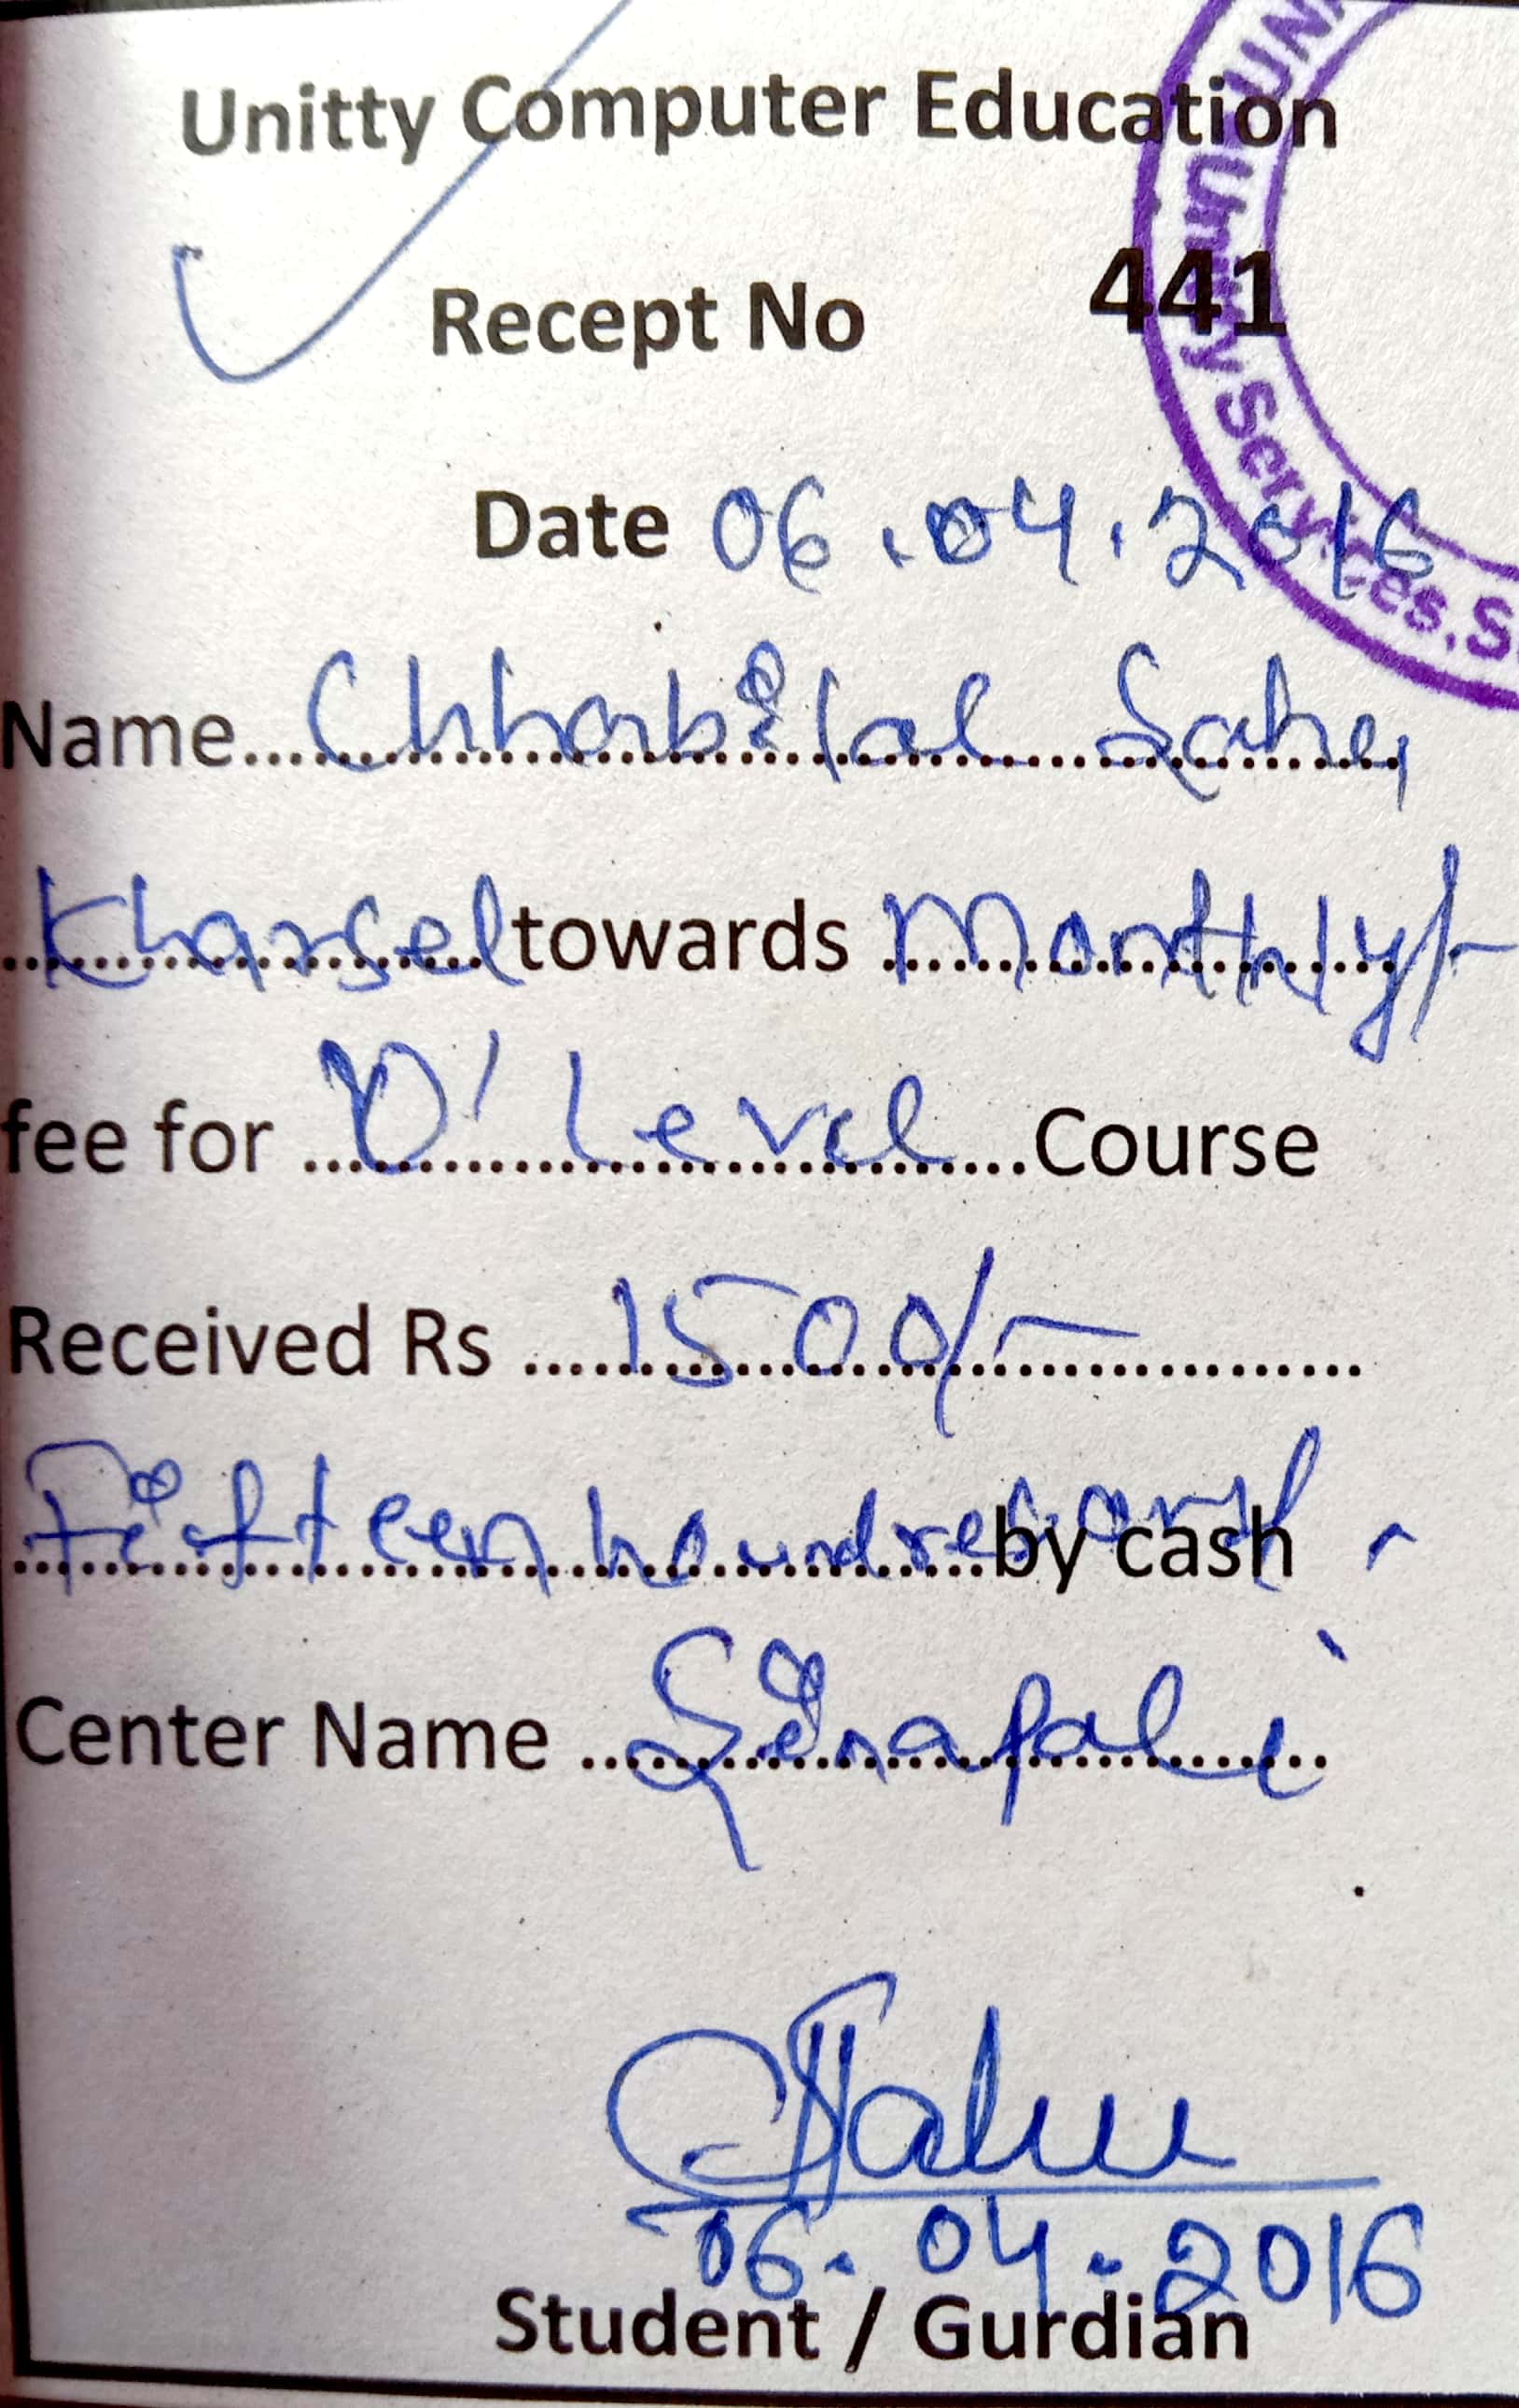 Unitty Computer Education
Recept No 441
Date 06.04.2016
Name...Chhabilal Sahu,
Kharsel towards Monthly/-
fee for ...'O' Level...Course
Received Rs ...1500/-...
Fifteen houndred only by cash
Center Name ...Sinapali
Sahu
06.04.2016
Student / Gurdian
Unitty Services, S